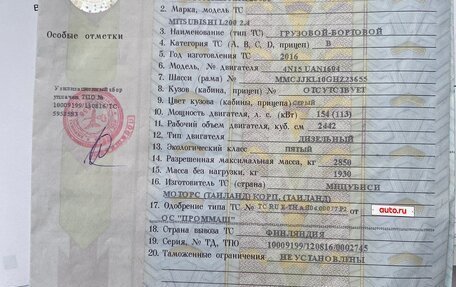 Особые отметки
Утилизационный сбор
уплачен ТПО №
10009199/120816/ТС
2. Марка, модель ТС
MITSUBISHI L200 2.4
3. Наименование (тип ТС) ГРУЗОВОЙ-БОРТОВОЙ
4. Категория ТС (А, В, С, D, прицеп) B
5. Год изготовления ТС 2016
6. Модель, № двигателя 4N15 UAN1694
7. Шасси (рама) № MMCJJKL10GHZ23655
8. Кузов (кабина, прицеп) № ОТСУТСТВУЕТ
9. Цвет кузова (кабины, прицепа) СЕРЫЙ
10. Мощность двигателя, л. с. (кВт) 154 (113)
11. Рабочий объем двигателя, куб. см 2442
12. Тип двигателя ДИЗЕЛЬНЫЙ
13. Экологический класс ПЯТЫЙ
14. Разрешенная максимальная масса, кг 2850
15. Масса без нагрузки, кг 1930
16. Изготовитель ТС (страна) МИЦУБИСИ
МОТОРС (ТАИЛАНД) КОРП. (ТАИЛАНД)
17. Одобрение типа ТС № от
auto.ru
ОС "ПРОММАШ"
18. Страна вывоза ТС ФИНЛЯНДИЯ
19. Серия, № ТД, ТПО 10009199/120816/0002745
20. Таможенные ограничения НЕ УСТАНОВЛЕНЫ